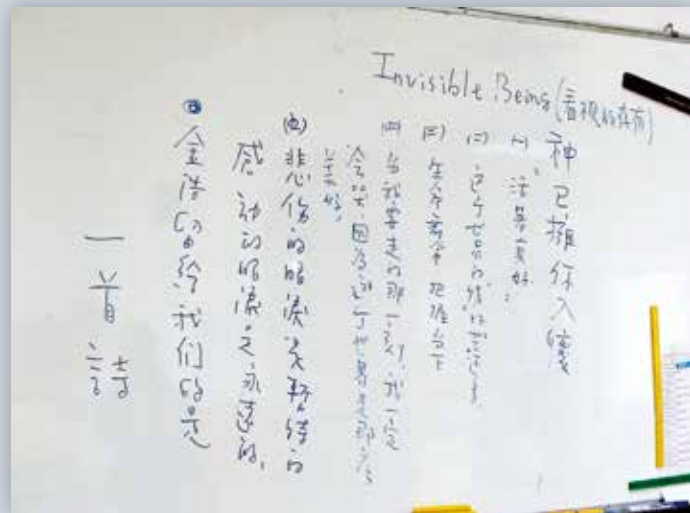 Invisible Being (看視的存有)
神已擁你入懷
(一) 活著真好。
(二) 这个世界的
(三) 生命奮鬥 把握当下
(四) 当我要走的那一刻，我一定
会哭，因为这个世界是那么
美好，
(五) 悲伤的眼淚是暫時的
感动的眼淚是永遠的，
金浩留给我们的是
一首詩